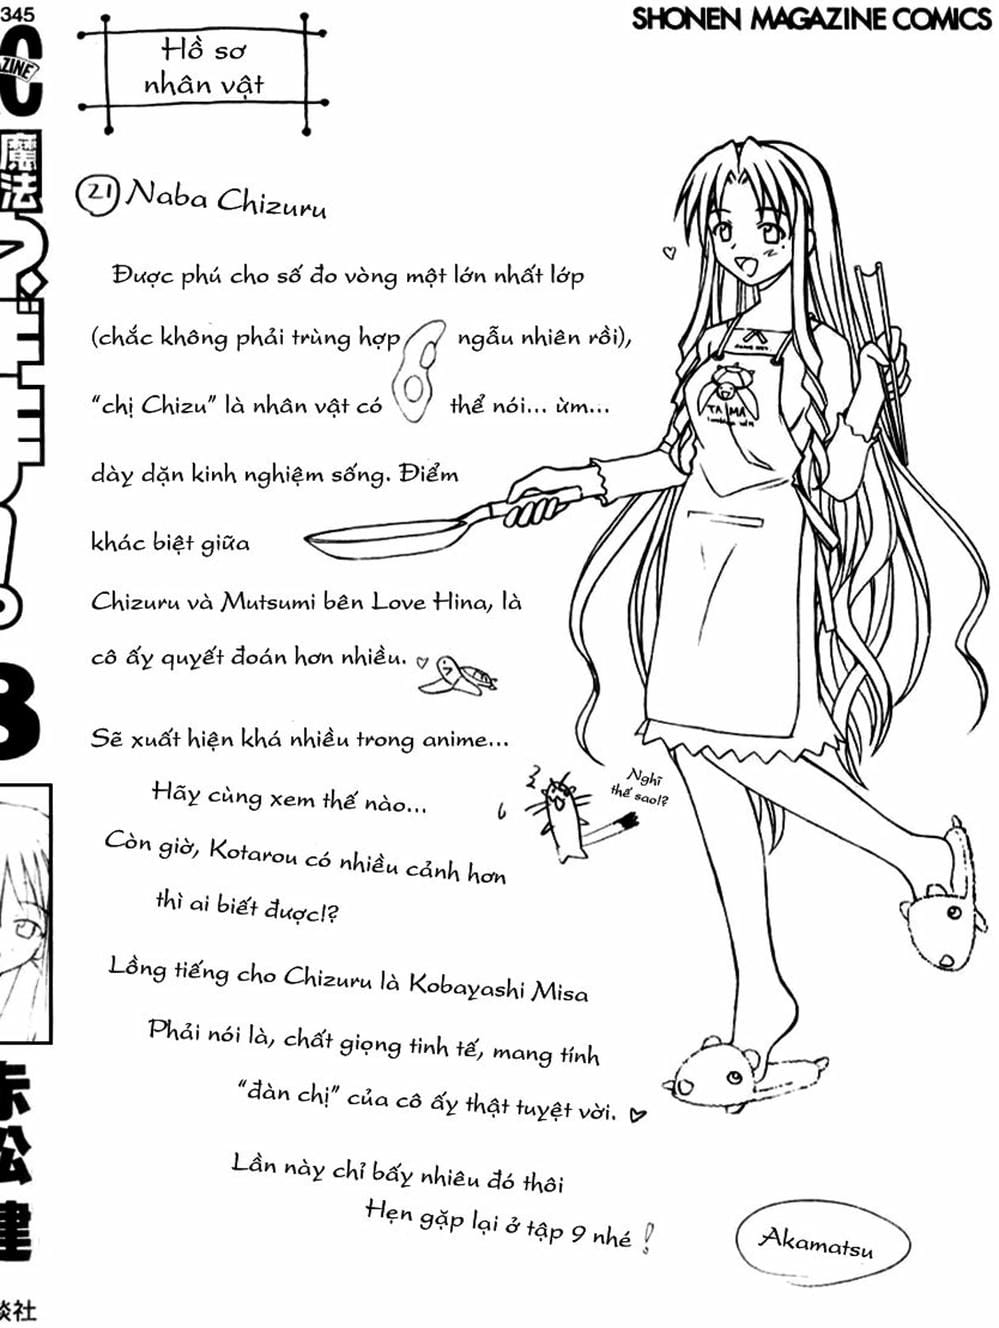 345
SHONEN MAGAZINE COMICS
ZINE
Hồ sơ
nhân vật
魔法
21 Naba Chizuru
Được phú cho số đo vòng một lớn nhất lớp
(chắc không phải trùng hợp ngẫu nhiên rồi),
"chị Chizu" là nhân vật có thể nói... ừm...
dày dặn kinh nghiệm sống. Điểm
khác biệt giữa
Chizuru và Mutsumi bên Love Hina, là
cô ấy quyết đoán hơn nhiều.
Sẽ xuất hiện khá nhiều trong anime...
Hãy cùng xem thế nào...
Còn giờ, Kotarou có nhiều cảnh hơn
thì ai biết được!?
Nghĩ
thế sao!?
TAMA
Lồng tiếng cho Chizuru là Kobayashi Misa
Phải nói là, chất giọng tinh tế, mang tính
"đàn chị" của cô ấy thật tuyệt vời.
Lần này chỉ bấy nhiêu đó thôi
Hẹn gặp lại ở tập 9 nhé !
Akamatsu
8
赤松健
談社